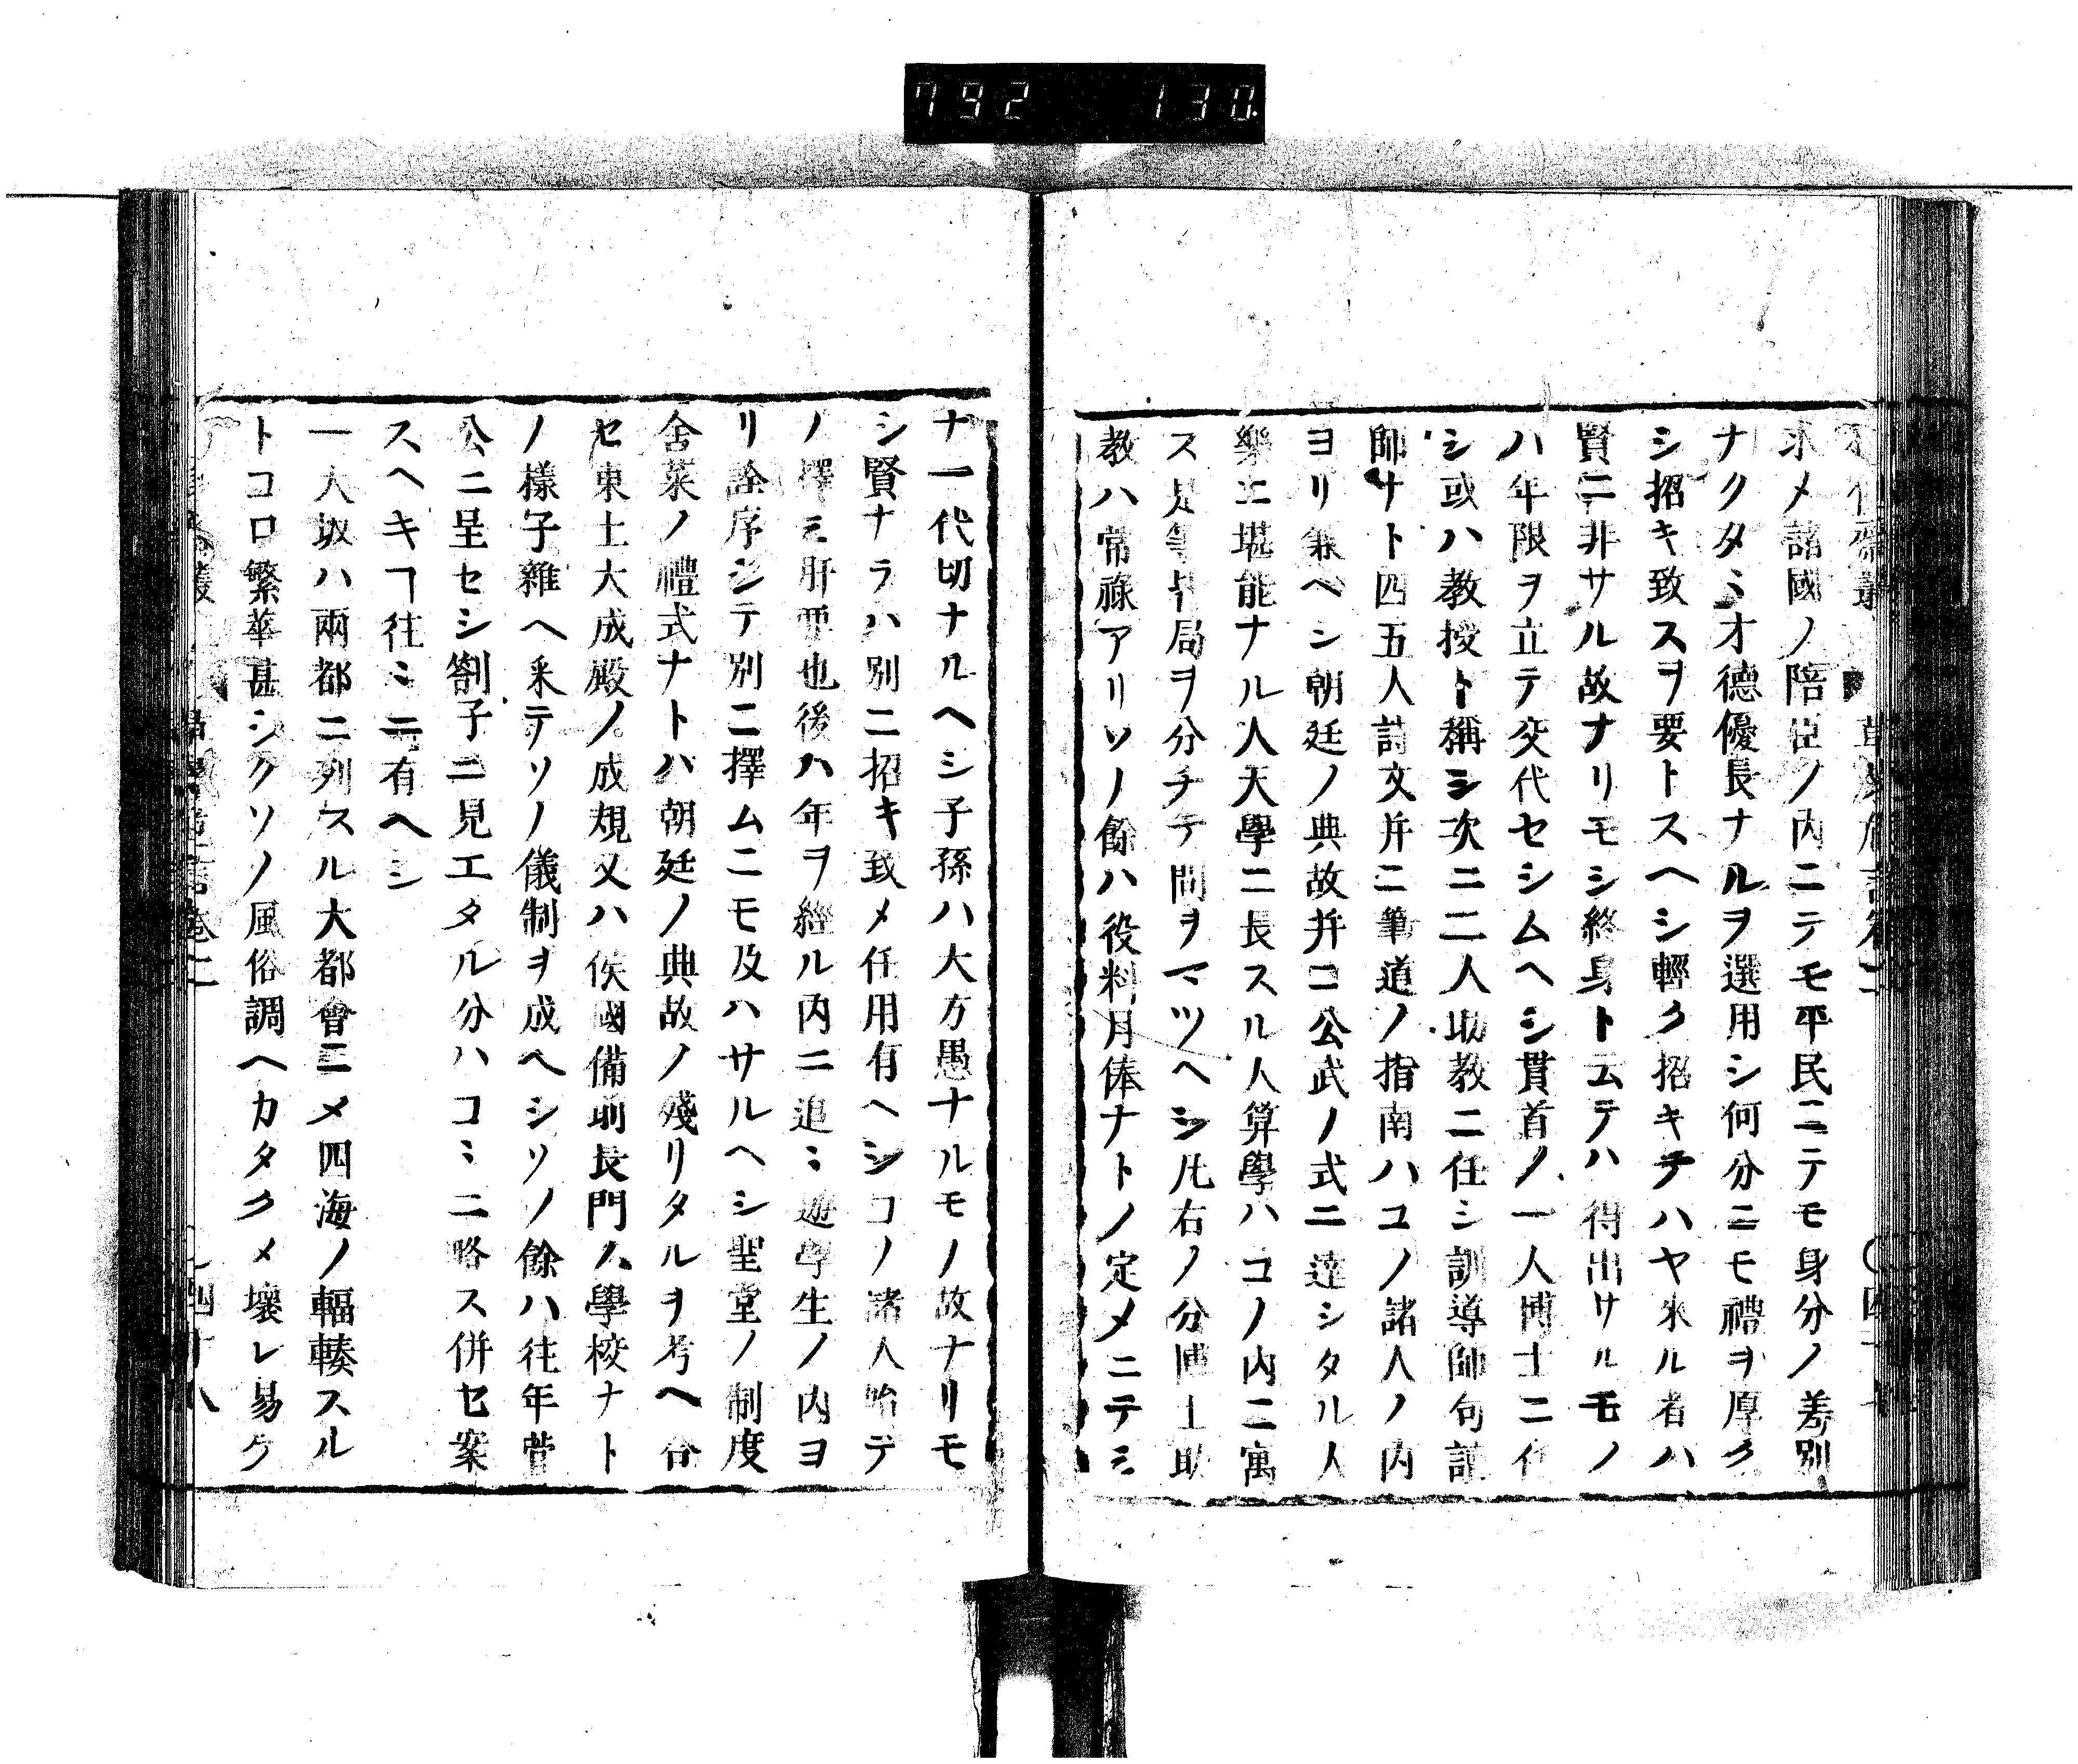 792 130
求メ諸國ノ陪臣ノ内ニテモ平民ニテモ身分ノ差別
ナクタミ才德優長ナルヲ選用シ何分ニモ禮ヲ厚ク
シ招キ致スヲ要トスヘシ輕ク招キテハヤ來ル者ハ
賢ニ非サル故ナリモシ終身ト云テハ得出サルモノ
ハ年限ヲ立テ交代セシムヘシ貫首ノ一人博士ニ任
シ或ハ教授ト稱シ次ニ二人助教ニ任シ訓導師句讀
師ナト四五人詩文并ニ筆道ノ指南ハコノ諸人ノ内
ヨリ兼ヘシ朝廷ノ典故并ニ公武ノ式ニ達シタル人
樂ニ堪能ナル人天學ニ長スル人算學ハコノ内ニ寓
ス是等局ヲ分チテ問ヲマツヘシ凡右ノ分博士助
教ハ常祿アリソノ餘ハ役料月俸ナトノ定メニテミ
ナ一代切ナルヘシ子孫ハ大方愚ナルモノ故ナリモ
シ賢ナラハ別ニ招キ致メ任用有ヘシコノ諸人始テ
ノ擇ミ肝要也後ハ年ヲ經ル内ニ追ミ遊學生ノ内ヨ
リ詮序シテ別ニ擇ムニモ及ハサルヘシ聖堂ノ制度
舍菜ノ禮式ナトハ朝廷ノ典故ノ殘リタルヲ考ヘ合
セ東土大成殿ノ成規又ハ侯國備前長門ノ學校ナト
ノ樣子雜ヘ釆テソノ儀制ヲ成ヘシソノ餘ハ往年菅
公ニ呈セシ劄子ニ見エタル分ハコミニ略ス併セ案
スヘキヿ往ミニ有ヘシ
一大坂ハ兩都ニ列スル大都會ニメ四海ノ輻輳スル
トコロ繁華甚シクソノ風俗調ヘカタクメ壞レ易ク